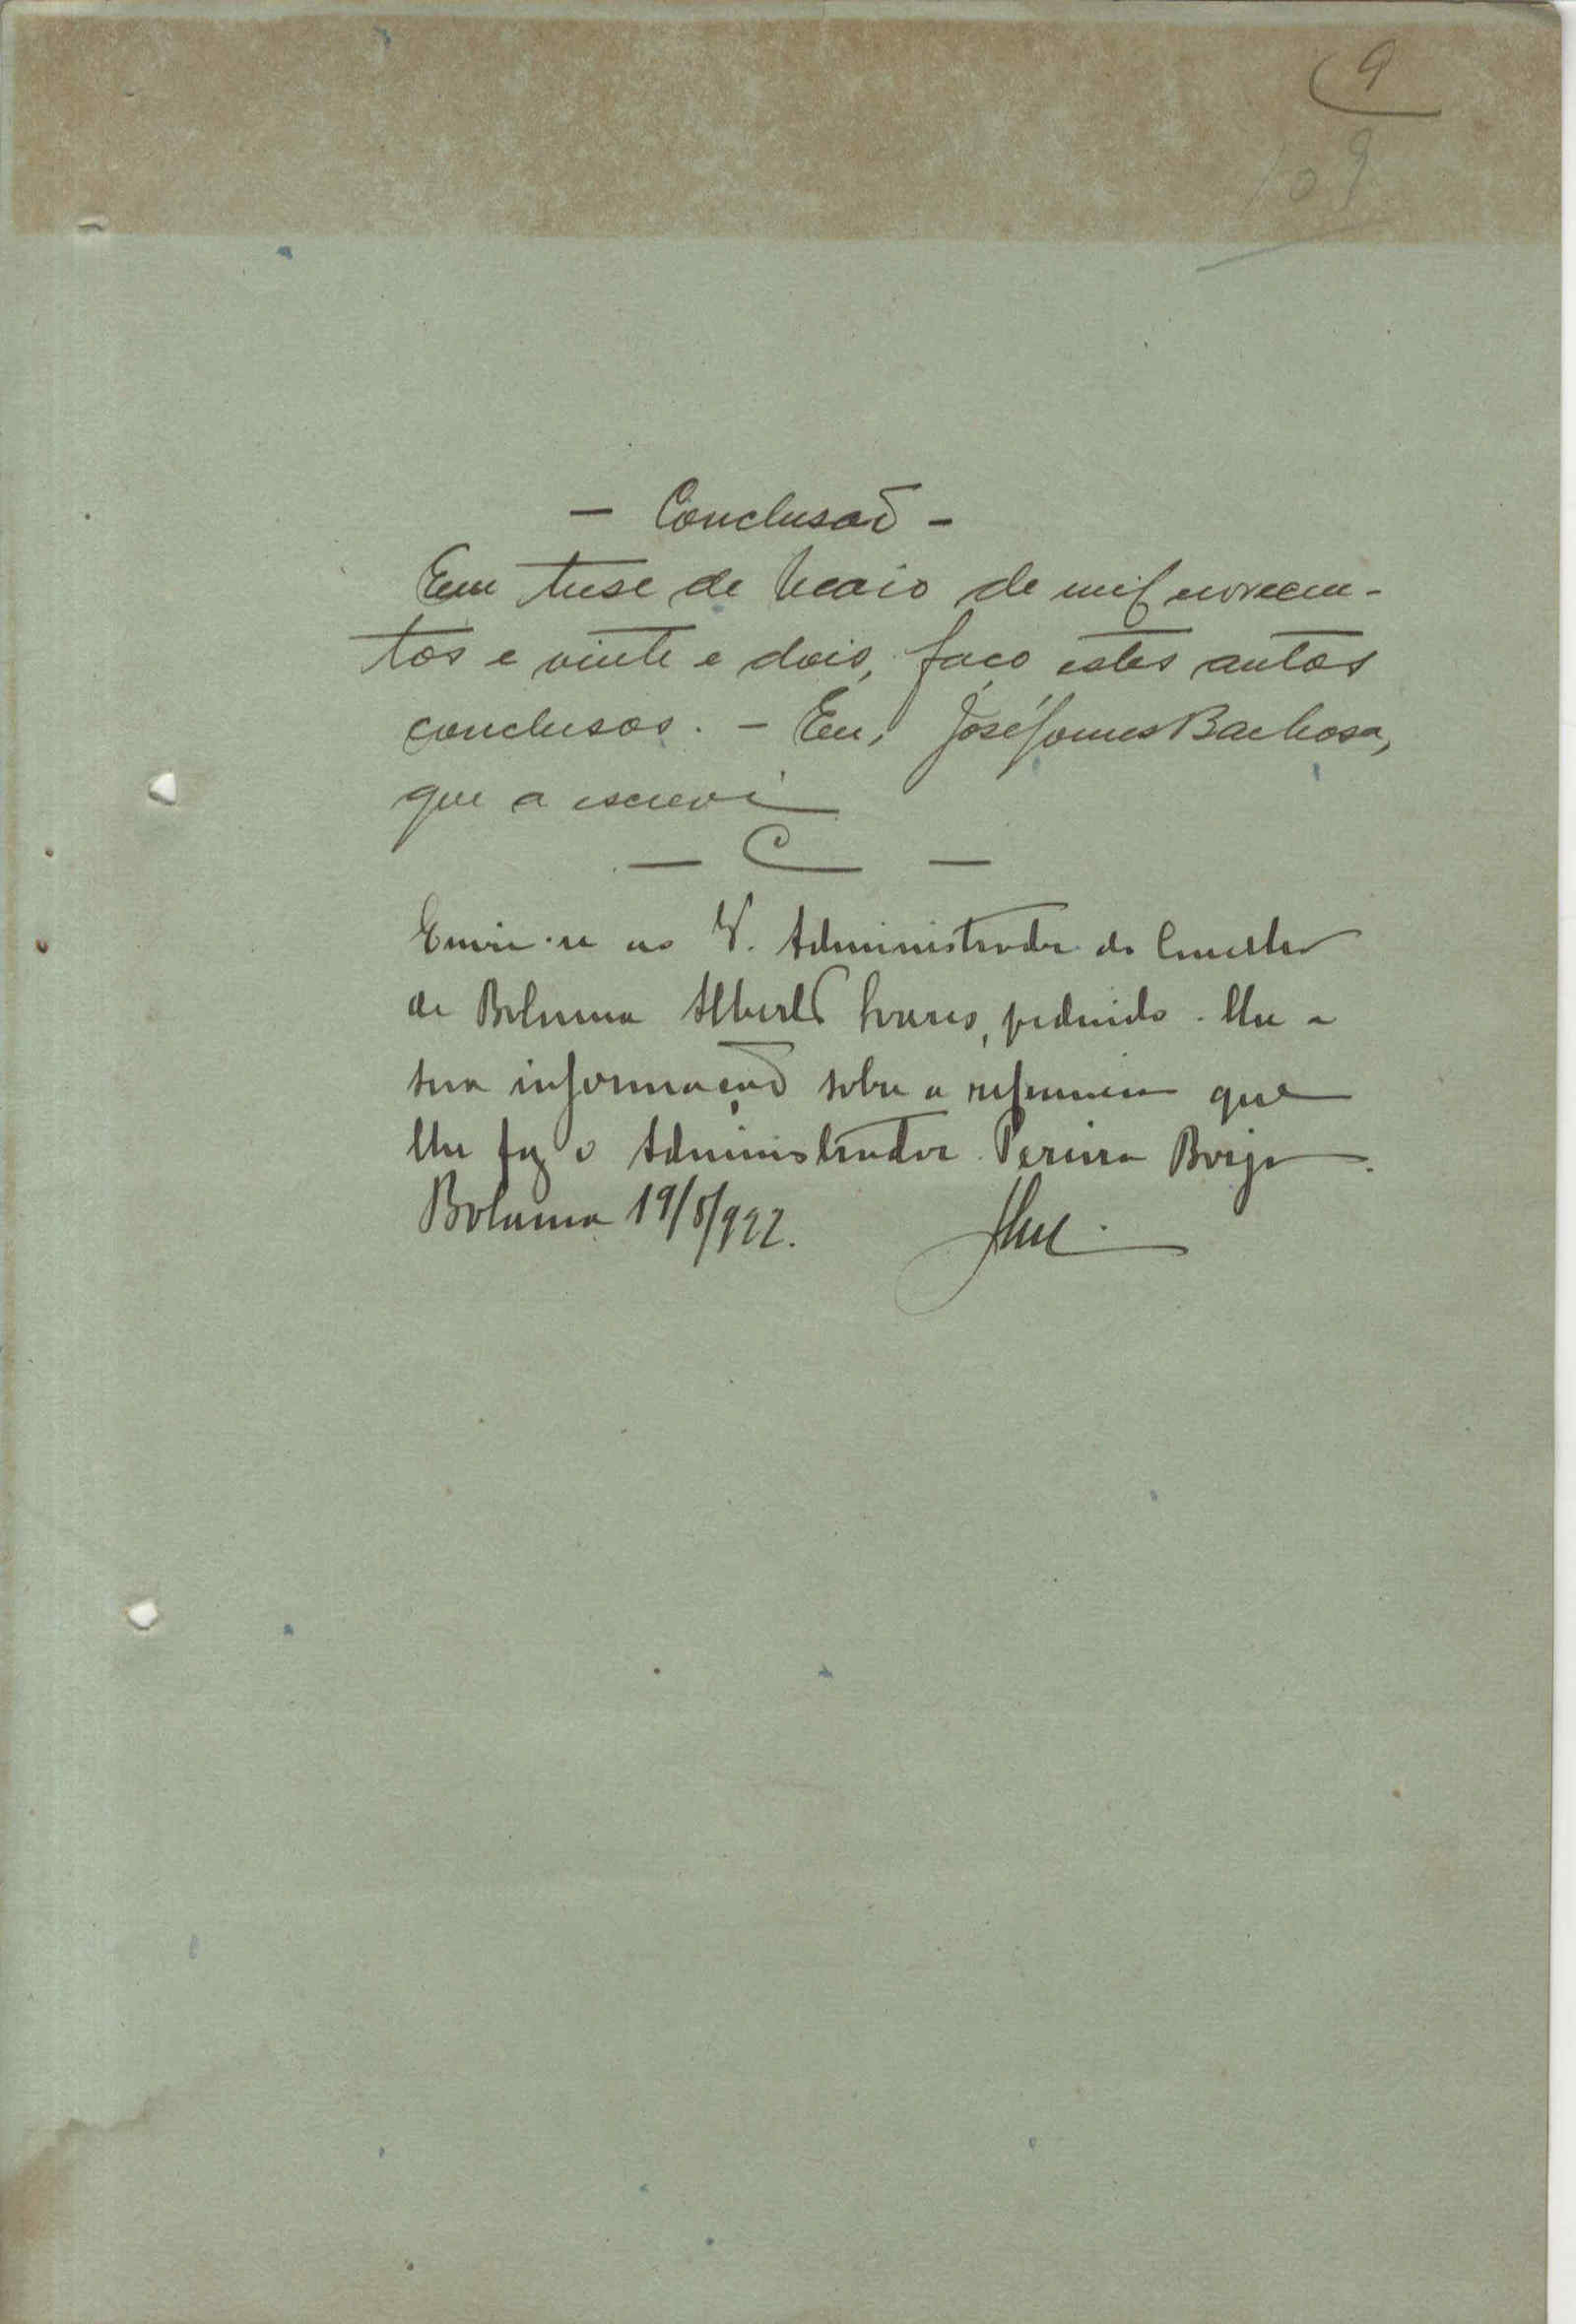 9
109
— Conclusaõ —
Em trese de Maio de mil novecen-
tos e vinte e dois, faço estes autos
conclusos. — Eu, José Gomes Barbosa,
que a escrevi
— C —
Envie-se ao Administrador do Concelho
de Bolama Alberto Soares, pedindo-lhe a
sua informação sobre a referencia que
lhe faz o Administrador Pereira Borja.
Bolama 19/5/922.